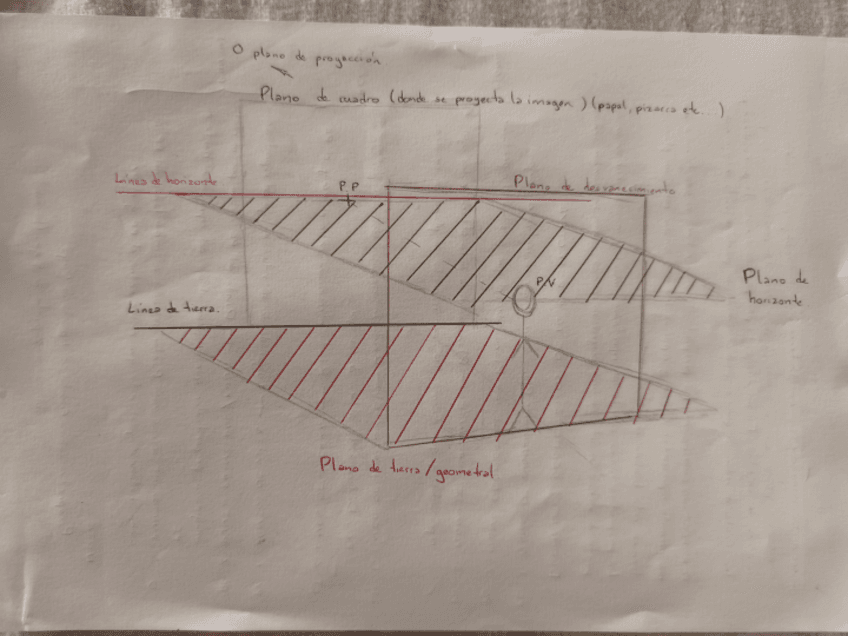 O plano de proyección
Plano de cuadro (donde se proyecta la imagen) (papel, pizarra etc...)
Línea de horizonte
P.P
Plano de desvanecimiento
P.V
Plano de
horizonte
Línea de tierra.
Plano de tierra/geometral